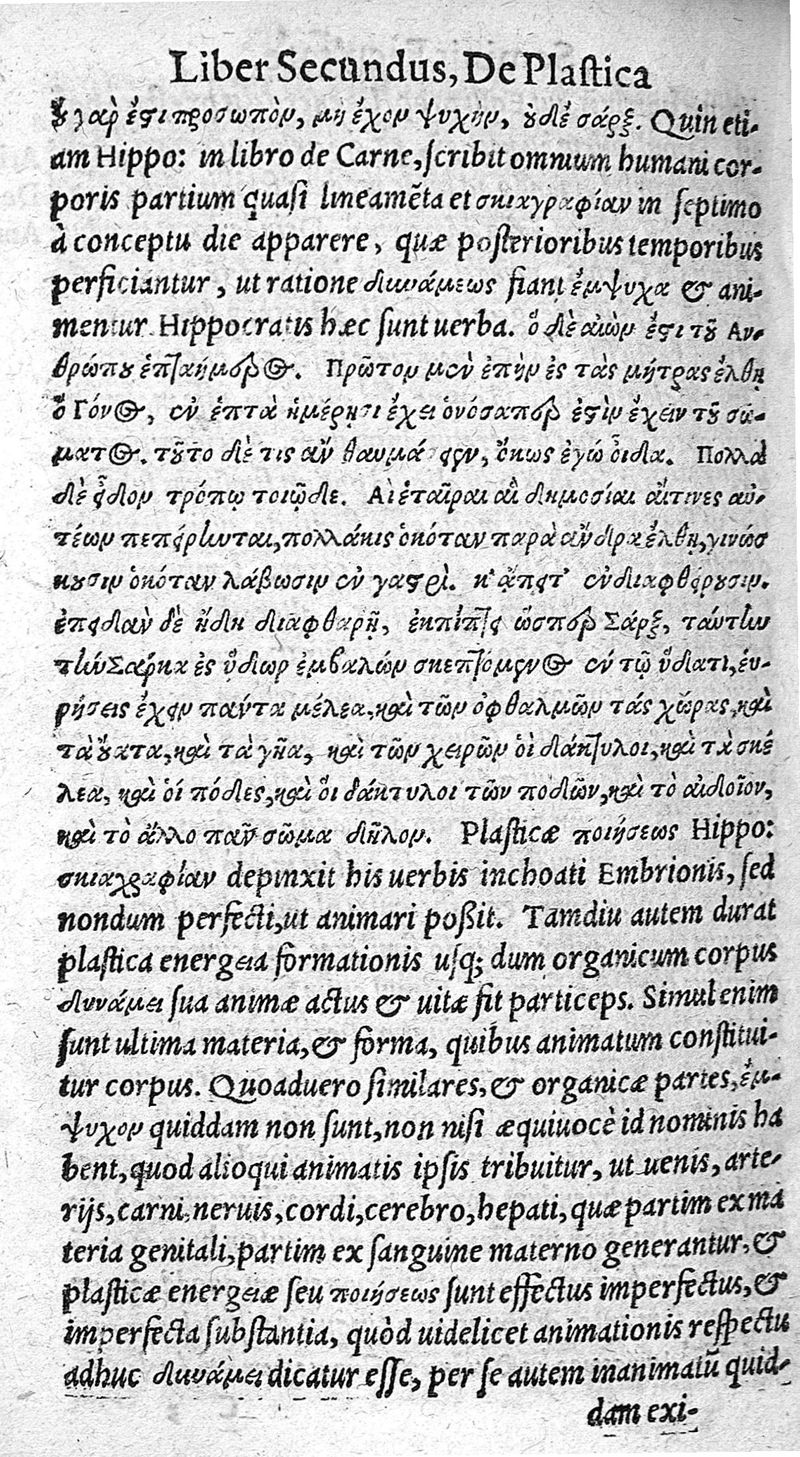 Liber Secundus, De Plastica
ȣ γαρ ἐστι προσωπὸν, μὴ ἔχον ψυχὴν, ȣδὲ σάρξ. Quin eti-
am Hippo: in libro de Carne, scribit omnium humani cor-
poris partium quasi lineamẽta et σκιαγραφίαν in septimo
à conceptu die apparere, quæ posterioribus temporibus
perficiantur, ut ratione δυνάμεως fiant ἔμψυχα & ani-
mentur. Hippocratis hæc sunt uerba. ὁ δὲ αἰὼν ἐστι τȣ͂ Ἀν-
θρώπȣ ἑπταήμερος. Πρῶτον μὲν ἐπὴν ἐς τὰς μήτρας ἔλθῃ
ὁ Γόνος, ἐν ἑπτὰ ἡμέρῃσι ἔχει ὁνόσαπερ ἐστὶν ἔχειν τȣ͂ σώ-
ματος. τȣ͂το δὲ τις ἂν θαυμάσειεν, ὅκως ἐγώ οἶδα. Πολλὰ
δὲ εἶδον τρόπῳ τοιῷδε. Αἱ ἑταῖραι αἱ δημοσίαι αἵτινες αὐ-
τέων πεπείρηνται, πολλάκις ὁκόταν παρὰ ἄνδρα ἔλθῃ, γινώσ
κȣσιν ὁκόταν λάβωσιν ἐν γαστρὶ. κ' ἄπειτ' ἐνδιαφθείρȣσιν.
ἐπειδὰν δὲ ἤδη διαφθαρῇ, ἐκπίπτει ὥσπερ Σάρξ, ταύτην
τὴν Σάρκα ἐς ὕδωρ ἐμβαλὼν σκεπτόμενος ἐν τῷ ὕδατι, εὑ-
ρήσεις ἔχειν παντα μέλεα, καὶ τῶν ὀφθαλμῶν τάς χώρας, καὶ
τὰ ȣ́ατα, καὶ τὰ γῆα, καὶ τῶν χειρῶν ὁι δάκτυλοι, καὶ τὰ σκέ
λεα, καὶ ὁί πόδες, καὶ ὁι δάκτυλοι τῶν ποδῶν, καὶ τὸ αἰδοῖον,
καὶ τὸ ἄλλο παν͂ σῶμα δῆλον. Plasticæ ποιήσεως Hippo:
σκιαγραφίαν depinxit his uerbis inchoati Embrionis, sed
nondum perfecti, ut animari poßit. Tamdiu autem durat
plastica energeia formationis usq; dum organicum corpus
δυνάμει sua animæ actus & uitæ fit particeps. Simul enim
sunt ultima materia, & forma, quibus animatum constitui-
tur corpus. Quoaduero similares, & organicæ partes, ἔμ-
ψυχον quiddam non sunt, non nisi æquiuocè id nominis ha
bent, quod alioqui animatis ipsis tribuitur, ut uenis, arte-
rijs, carni, neruis, cordi, cerebro, hepati, quæ partim ex ma
teria genitali, partim ex sanguine materno generantur, &
plasticæ energeiæ seu ποιήσεως sunt effectus imperfectus, &
imperfecta substantia, quòd uidelicet animationis respectu
adhuc δυνάμει dicatur esse, per se autem inanimatũ quid-
dam exi-